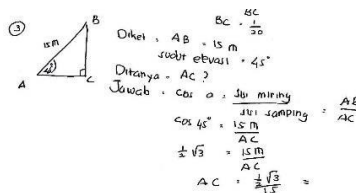 ③
B
15 m
45°
A
C
BC = BC
1/20
Diket = AB = 15 m
sudut elevasi = 45°
Ditanya = AC ?
Jawab = cos a = sisi miring / sisi samping = AB / AC
cos 45° = 15 m / AC
1/2 √3 = 15 m / AC
AC = 1/2 √3 / 15 =